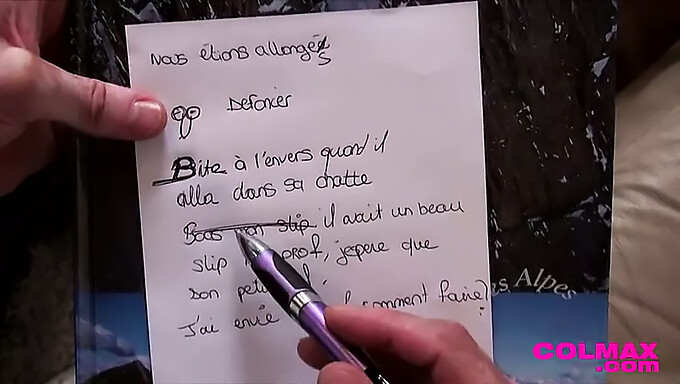 Nous étions allongés
Defoncer
Bite à l'envers quand il
alla dans sa chatte
Sous mon slip il avait un beau
slip prof, jepere que
son petit
J'ai envie comment faire?
es Alpes
COLMAX
.com